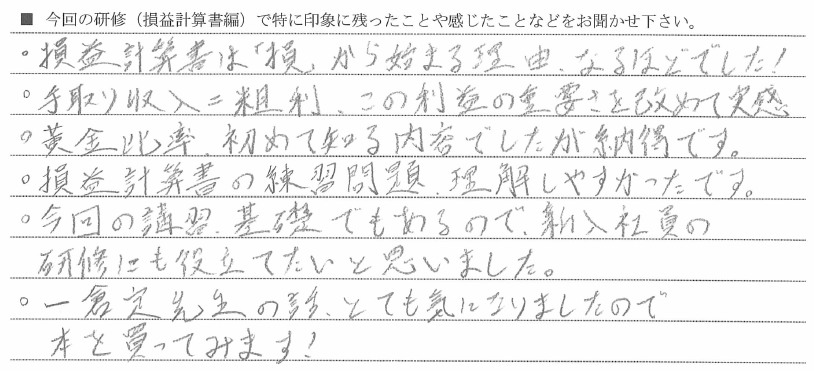 ■ 今回の研修（損益計算書編）で特に印象に残ったことや感じたことなどをお聞かせ下さい。
○損益計算書は「損」から始まる理由、なるほどでした！
○手取り収入＝粗利、この利益の重要さを改めて実感
○黄金比率、初めて知る内容でしたが納得です。
○損益計算書の練習問題、理解しやすかったです。
○今回の講習、基礎でもあるので、新入社員の
研修にも役立てたいと思いました。
○一倉定先生の話、とても気になりましたので
本を買ってみます！